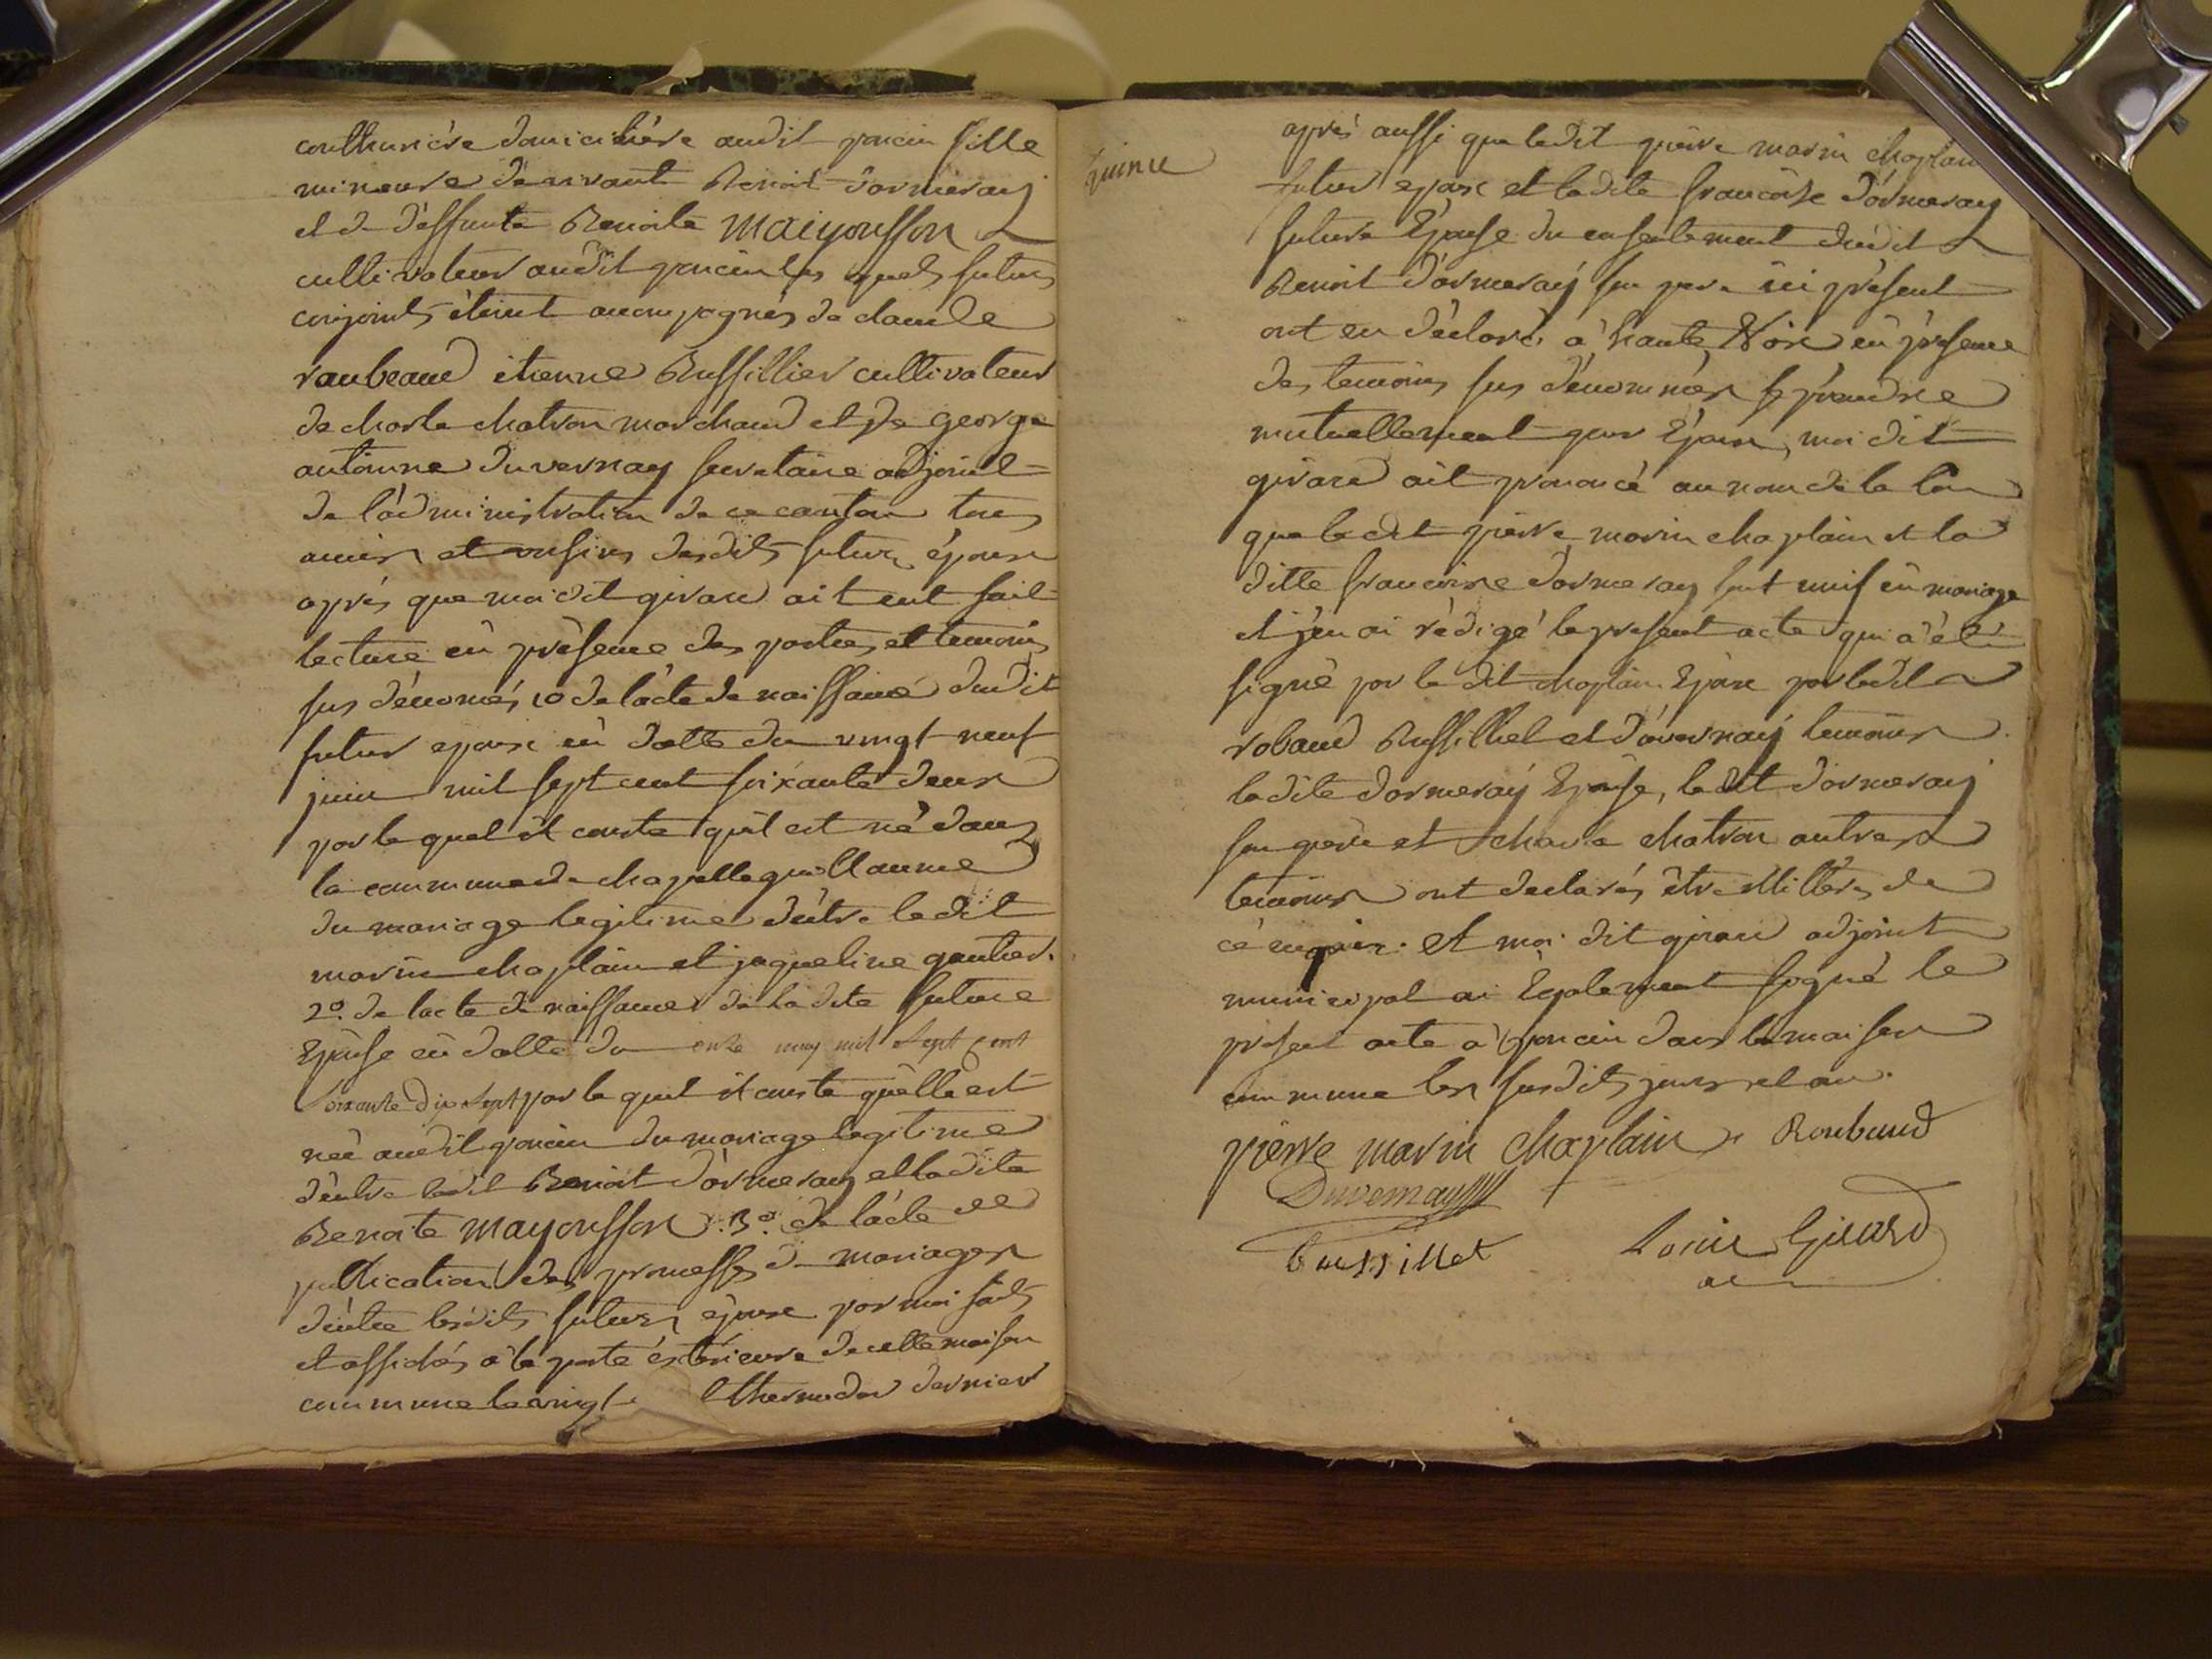 couthurière domicilière audit poncin fille
mineure de vivant Benoit dormeray
et de déffunte Benoite maiyousson
cultivateur audit poncin les quels futurs
conjoints étoint accompagnés de claude
raubeaud etienne Bussillier cultivateur
de charle chatron marchand et de george
antoinne duvernay secretaire adjoint
de l'administration de ce canton tous
amien et cousins desdits futurs épouse
après que moi dit girard ait eut fait
lecture en présence des parties et temoins
sus dénomés 1o de l'acte de naissance dudit
futur epoux en datte du vingt neuf
juin mil sept cent soixante deux
par le quel il conste qu'il est né dans
la commune de chapelle guillaume
du mariage legitime d'entre ledit
marin chaplain et jaqueline gautier.
2o. de lacte de naissance de la dite future
Epouse en datte du onze may mil sept cent
soixante dix sept par le quel il conste qu'elle est
née audit poncin du mariage legitime
d'entre ledit Benoit d'ormeray et ladite
Benoite mayousson. 3o. de l'acte de
publication des promesses de mariages
d'entre lesdits futurs épouse par moi faits
et affichés à la porte éxtérieure de cette maison
commune le vingt thermidor dernier
quince
après aussi que ledit pierre marin chaplain
futur epoux et ladite françoise d'ormeray
future Epouse du consentement dudit
Benoit d'ormeray son pere ici présent
ont eu déclaré à haute Voix en présence
des temoins sus dénommés se prendre
mutuellement pour Epoux, moi dit
girard ait prononcé au nom de la loi
que ledit pierre marin chaplain et la
ditte francoise dormeray sont unis en mariage
et j'en ai rédigé le present acte qui a été
signé par le dit chaplain Epoux par ledit
robaud Bussilliet et d'uvernay temoins
ladite dormeray Epouse, le dit dormeray
son père et charle chatron autre
temoins ont declarés être illittérés de
ce enquis. et moi dit girard adjoint
municipal ai Egalement signé le
present acte à poncin dans la maison
commune les susdits jours et an.
pierre marin chaplain Roubaud
Duvernay
bussillet Louis Girard